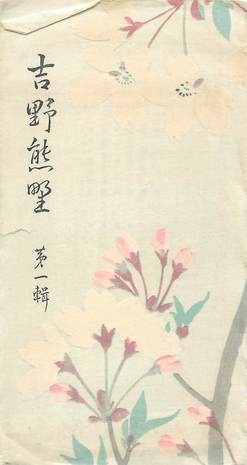 吉野熊野
第一輯